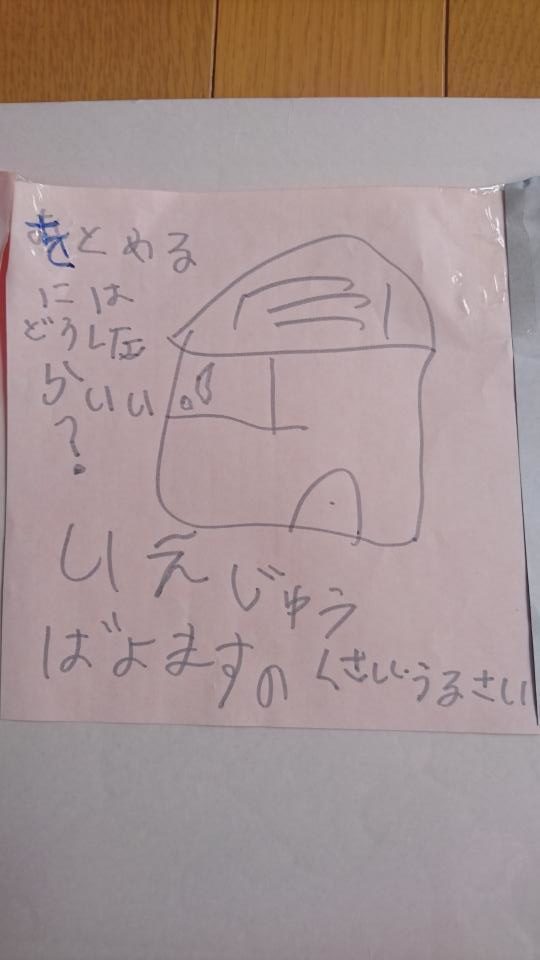 をとめる
には
どうしたら
がいい
?
いえじゅう
ばよますの
くさい・うるさい